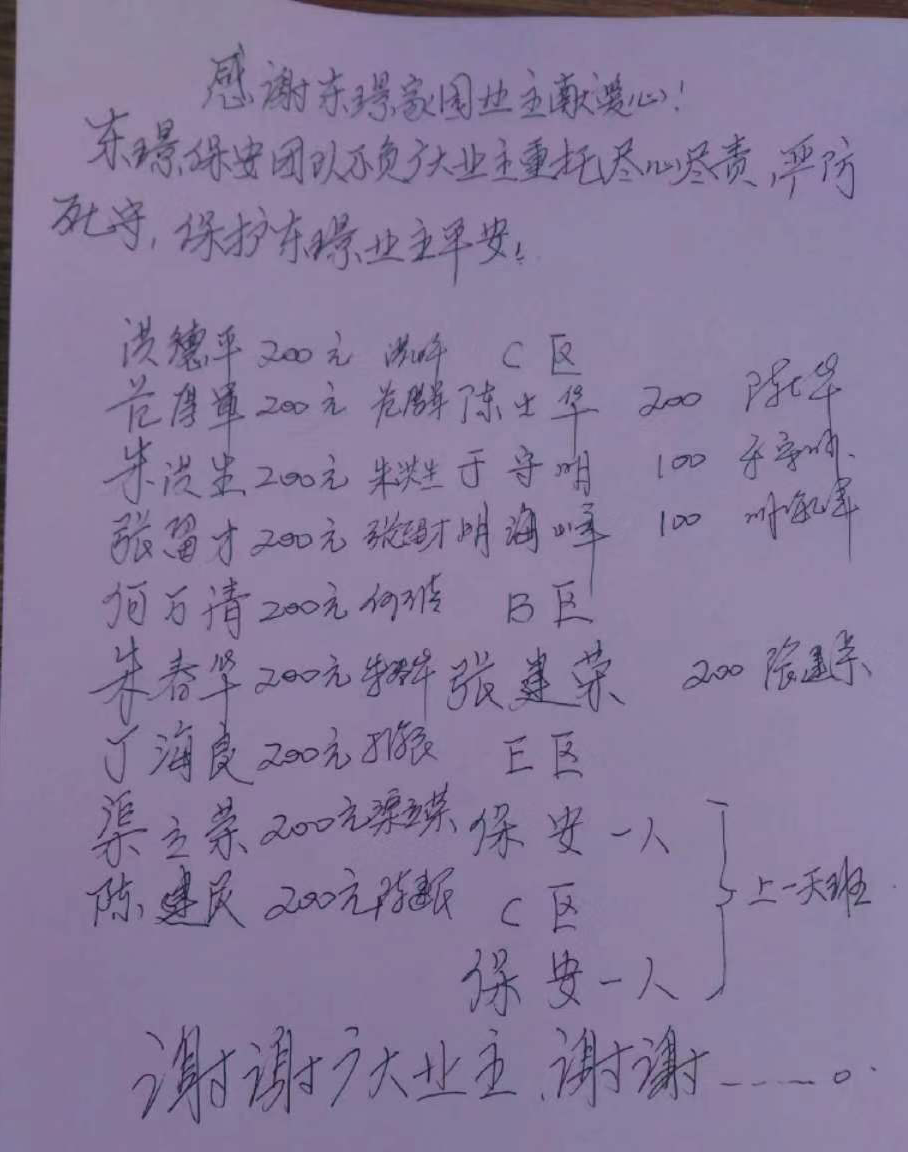 感谢东璟家园业主献爱心!
东璟保安团队不负广大业主重托尽心尽责,严防
死守,保护东璟业主平安!
洪德平 200元 C区
范厚军 200元 陈士华 200 陈士华
朱洪生 200元 朱洪生 于守明 100 于守明
张留才 200元 张留才 明海峰 100 明海峰
何万清 200元 B区
朱春华 200元 朱春华 张建荣 200 张建荣
丁海良 200元 丁海良 E区
渠立荣 200元 渠立荣 保安一人
陈建民 200元 陈建民 C区 上一天班
保安一人
谢谢广大业主,谢谢……。